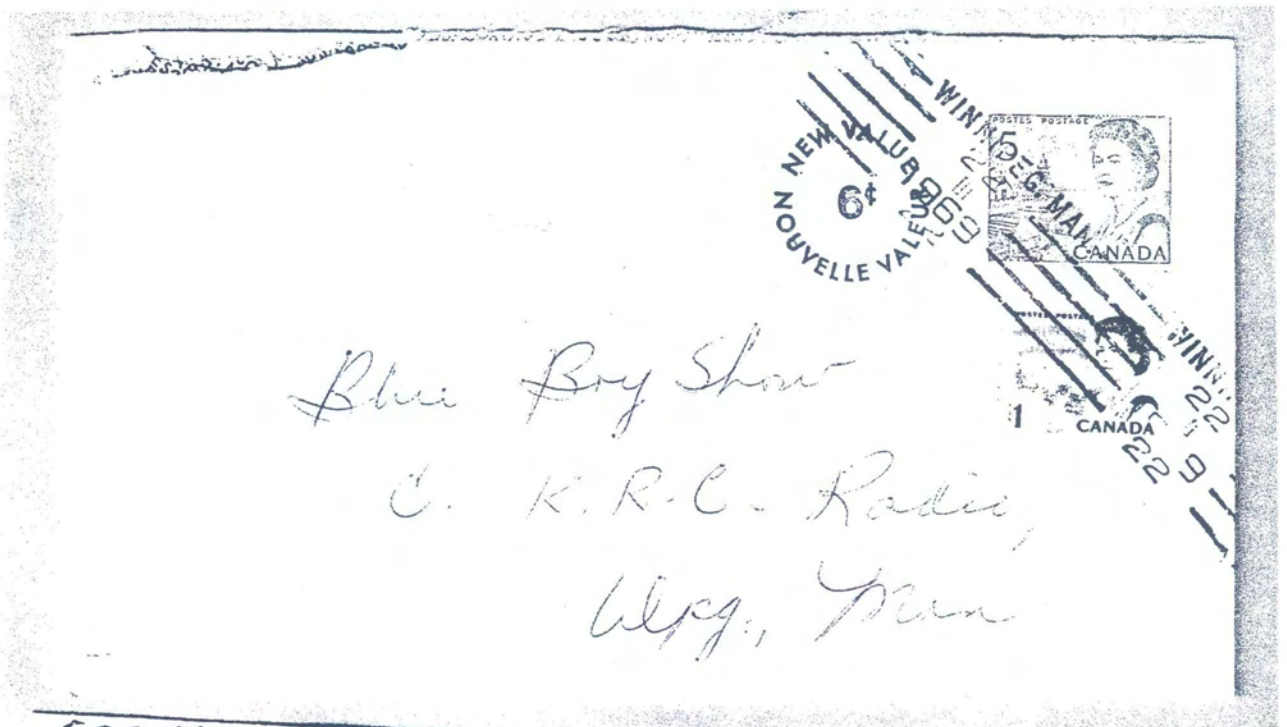 NEW VALUE
6¢
NOUVELLE VALEUR
WINNIPEG. MAN.
1969
22
POSTES POSTAGE
5
CANADA
POSTES POSTAGE
1
CANADA
WINNI
22
22 9
Blue Boy Show
C. K. R. C. Radio,
Wpg., Man